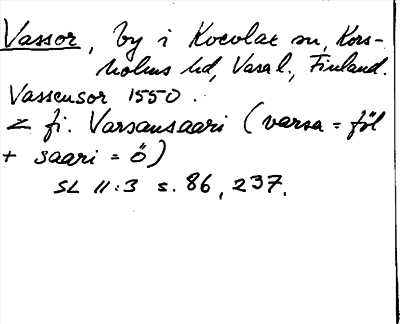 Vassor, by i Kvevlax sn, Kors-
holms hd, Vasa l., Finland.
Vassensor 1550.
< fi. Varsansaari (varsa = föl
+ saari = ö)
SL 11:3 s. 86, 237.